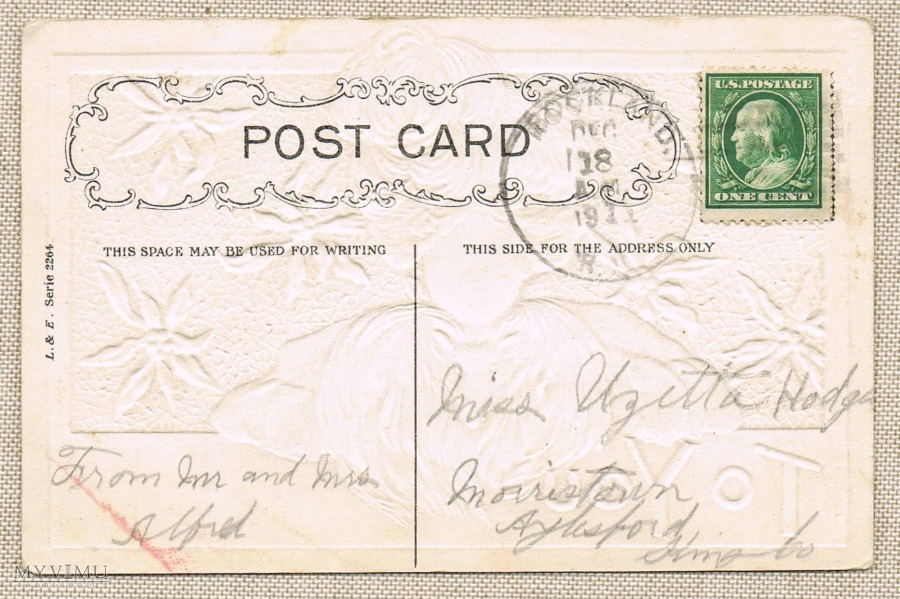 POST CARD
ROCKLAND.
DEC
18
1911
U.S. POSTAGE
ONE CENT
THIS SPACE MAY BE USED FOR WRITING
THIS SIDE FOR THE ADDRESS ONLY
L. & E. Serie 2264
From Mr and Mrs
Alford
Miss Uzetta Hodge
Morristown
Aylesford
Kings Co
MYVIMU